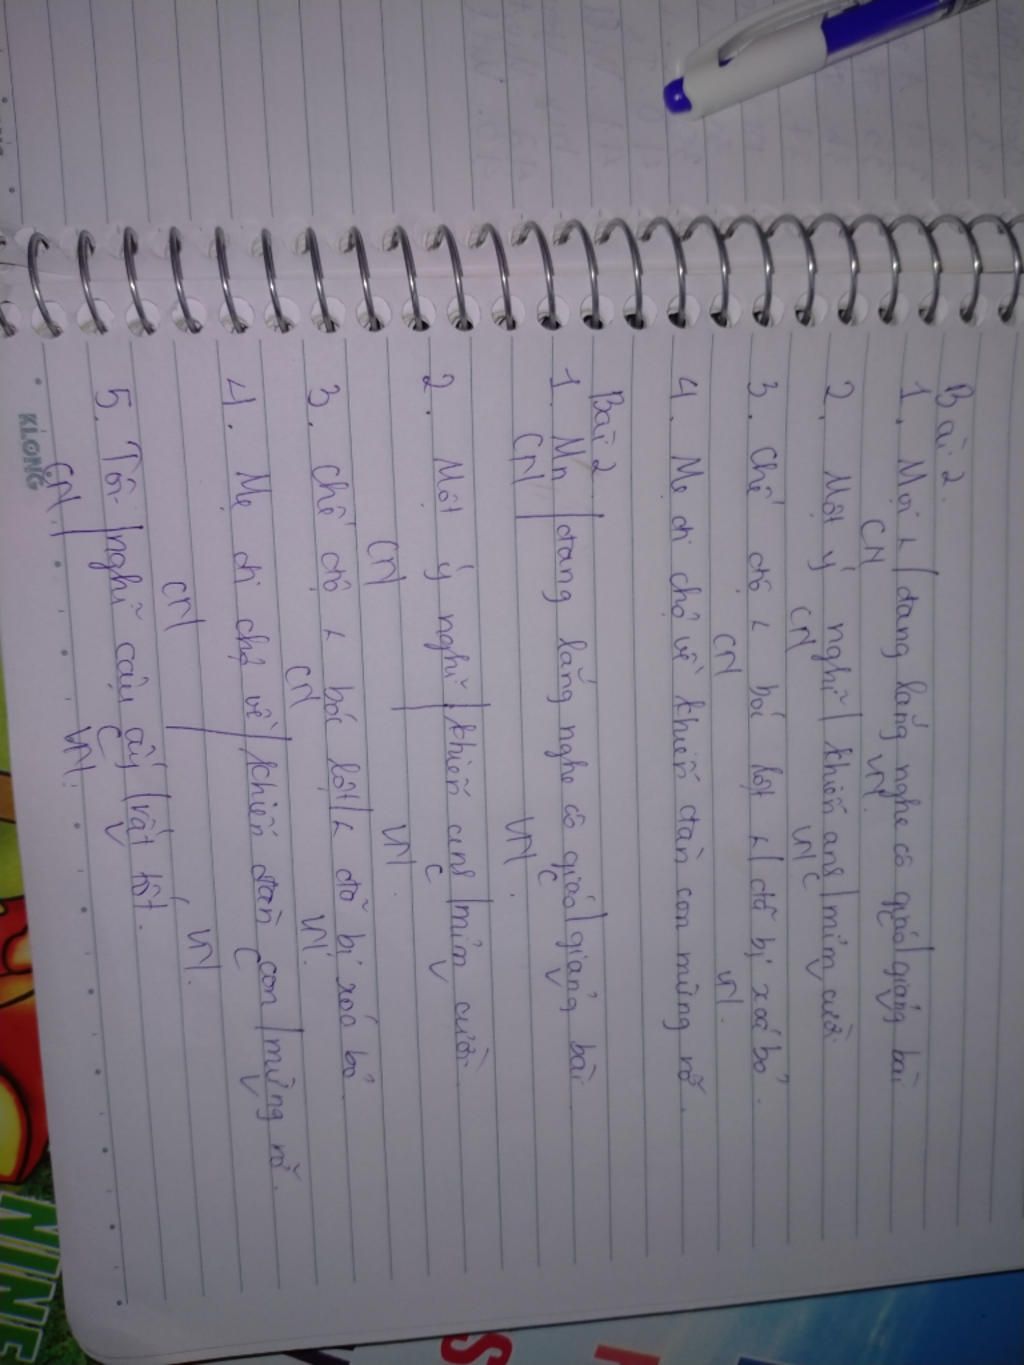 Bài 2.
1. Mọi L / đang lắng nghe cô giáo / giảng bài
CN VN. C V
2. Một ý nghĩ / khiến anh / mỉm cười
CN VN C V
3. Chế độ L bóc lột L / đã bị xoá bỏ.
CN VN.
4. Mẹ đi chợ về khiến đàn con mừng rỡ.
Bài 2
1. Mn / đang lắng nghe cô giáo / giảng bài
CN VN. C V
2. Một ý nghĩ / khiến anh / mỉm cười.
CN VN. C V
3. Chế độ L bóc lột / L đã bị xoá bỏ.
CN VN.
4. Mẹ đi chợ về / khiến đàn con / mừng rỡ.
CN VN. C V
5. Tôi / nghĩ cậu ấy / rất tốt.
CN VN. C V
KLONG
NINE
S